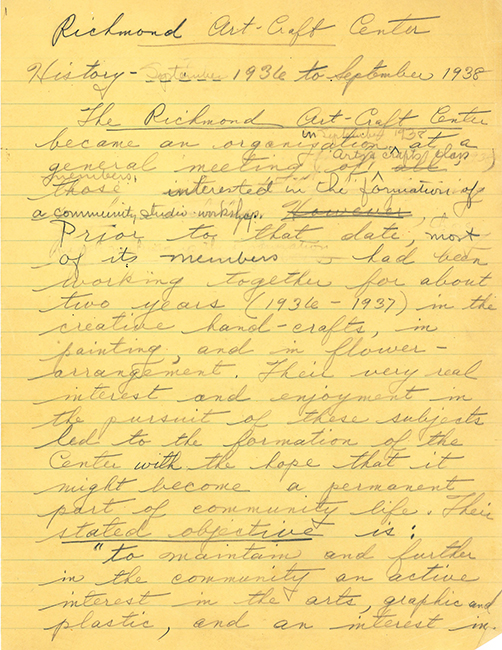 Richmond Art-Craft Center
History - September 1936 to September 1938
The Richmond Art-Craft Center
in September 1938
became an organization at a
arts & crafts class
general meeting of all
members,
those interested in the formation of
a community studio-workshop. However,
Prior to that date, most
of its members - had been
working together for about
two years (1936 - 1937) in the
creative hand-crafts, in
painting, and in flower-
arrangement. Their very real
interest and enjoyment in
the pursuit of these subjects
led to the formation of the
Center with the hope that it
might become a permanent
part of community life. Their
stated objective is:
"To maintain and further
in the community an active
interest in the arts, graphic and
plastic, and an interest in